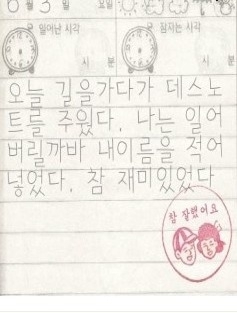 6월 3일 요일
일어난 시각 잠자는 시각
시 분 시 분
오늘 길을가다가 데스노
트를 주웠다. 나는 잃어
버릴까바 내이름을 적어
넣었다. 참 재미있었다
참 잘했어요